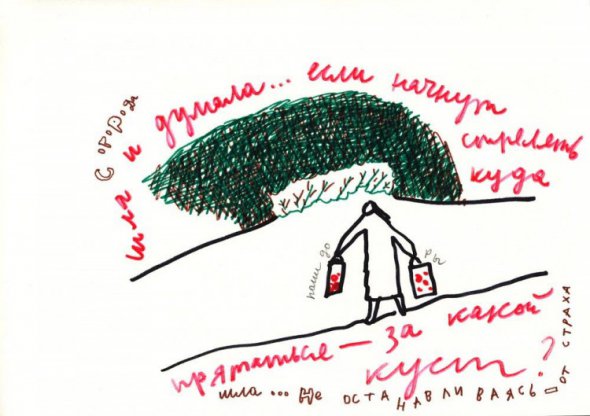 с огорода
шла и думала... если начнут
стрелять
куда
наши да
ры
прятаться — за какой
куст?
шла... не останавливаясь — от страха